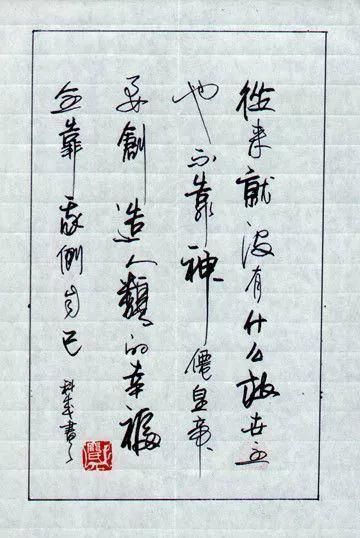 從来就没有什么救世主
也不靠神僊皇帝
要創造人類的幸福
全靠我們自己
書